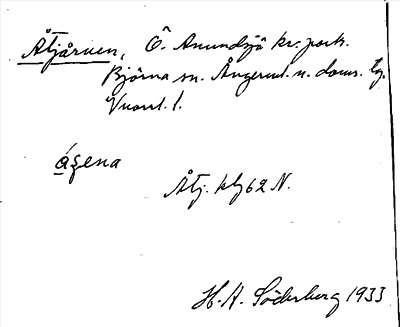 Åtjärnen, Ö. Anundsjö kr. park.
Björna sn. Ångerml. n. doms. lg.
Vuosl. 1.
áʒena
Åtj. klg 62 N.
H. A. Söderberg 1933